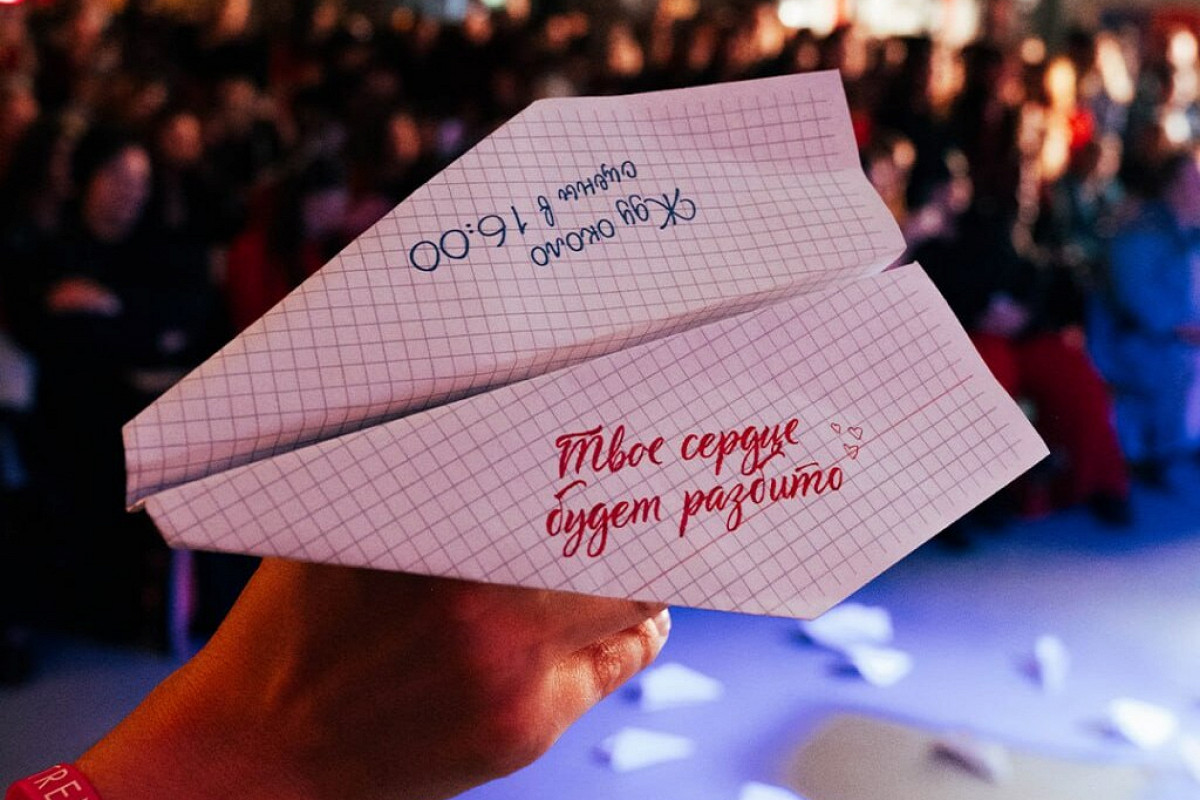 Жду около
сцены в 16:00
Твое сердце
будет разбито